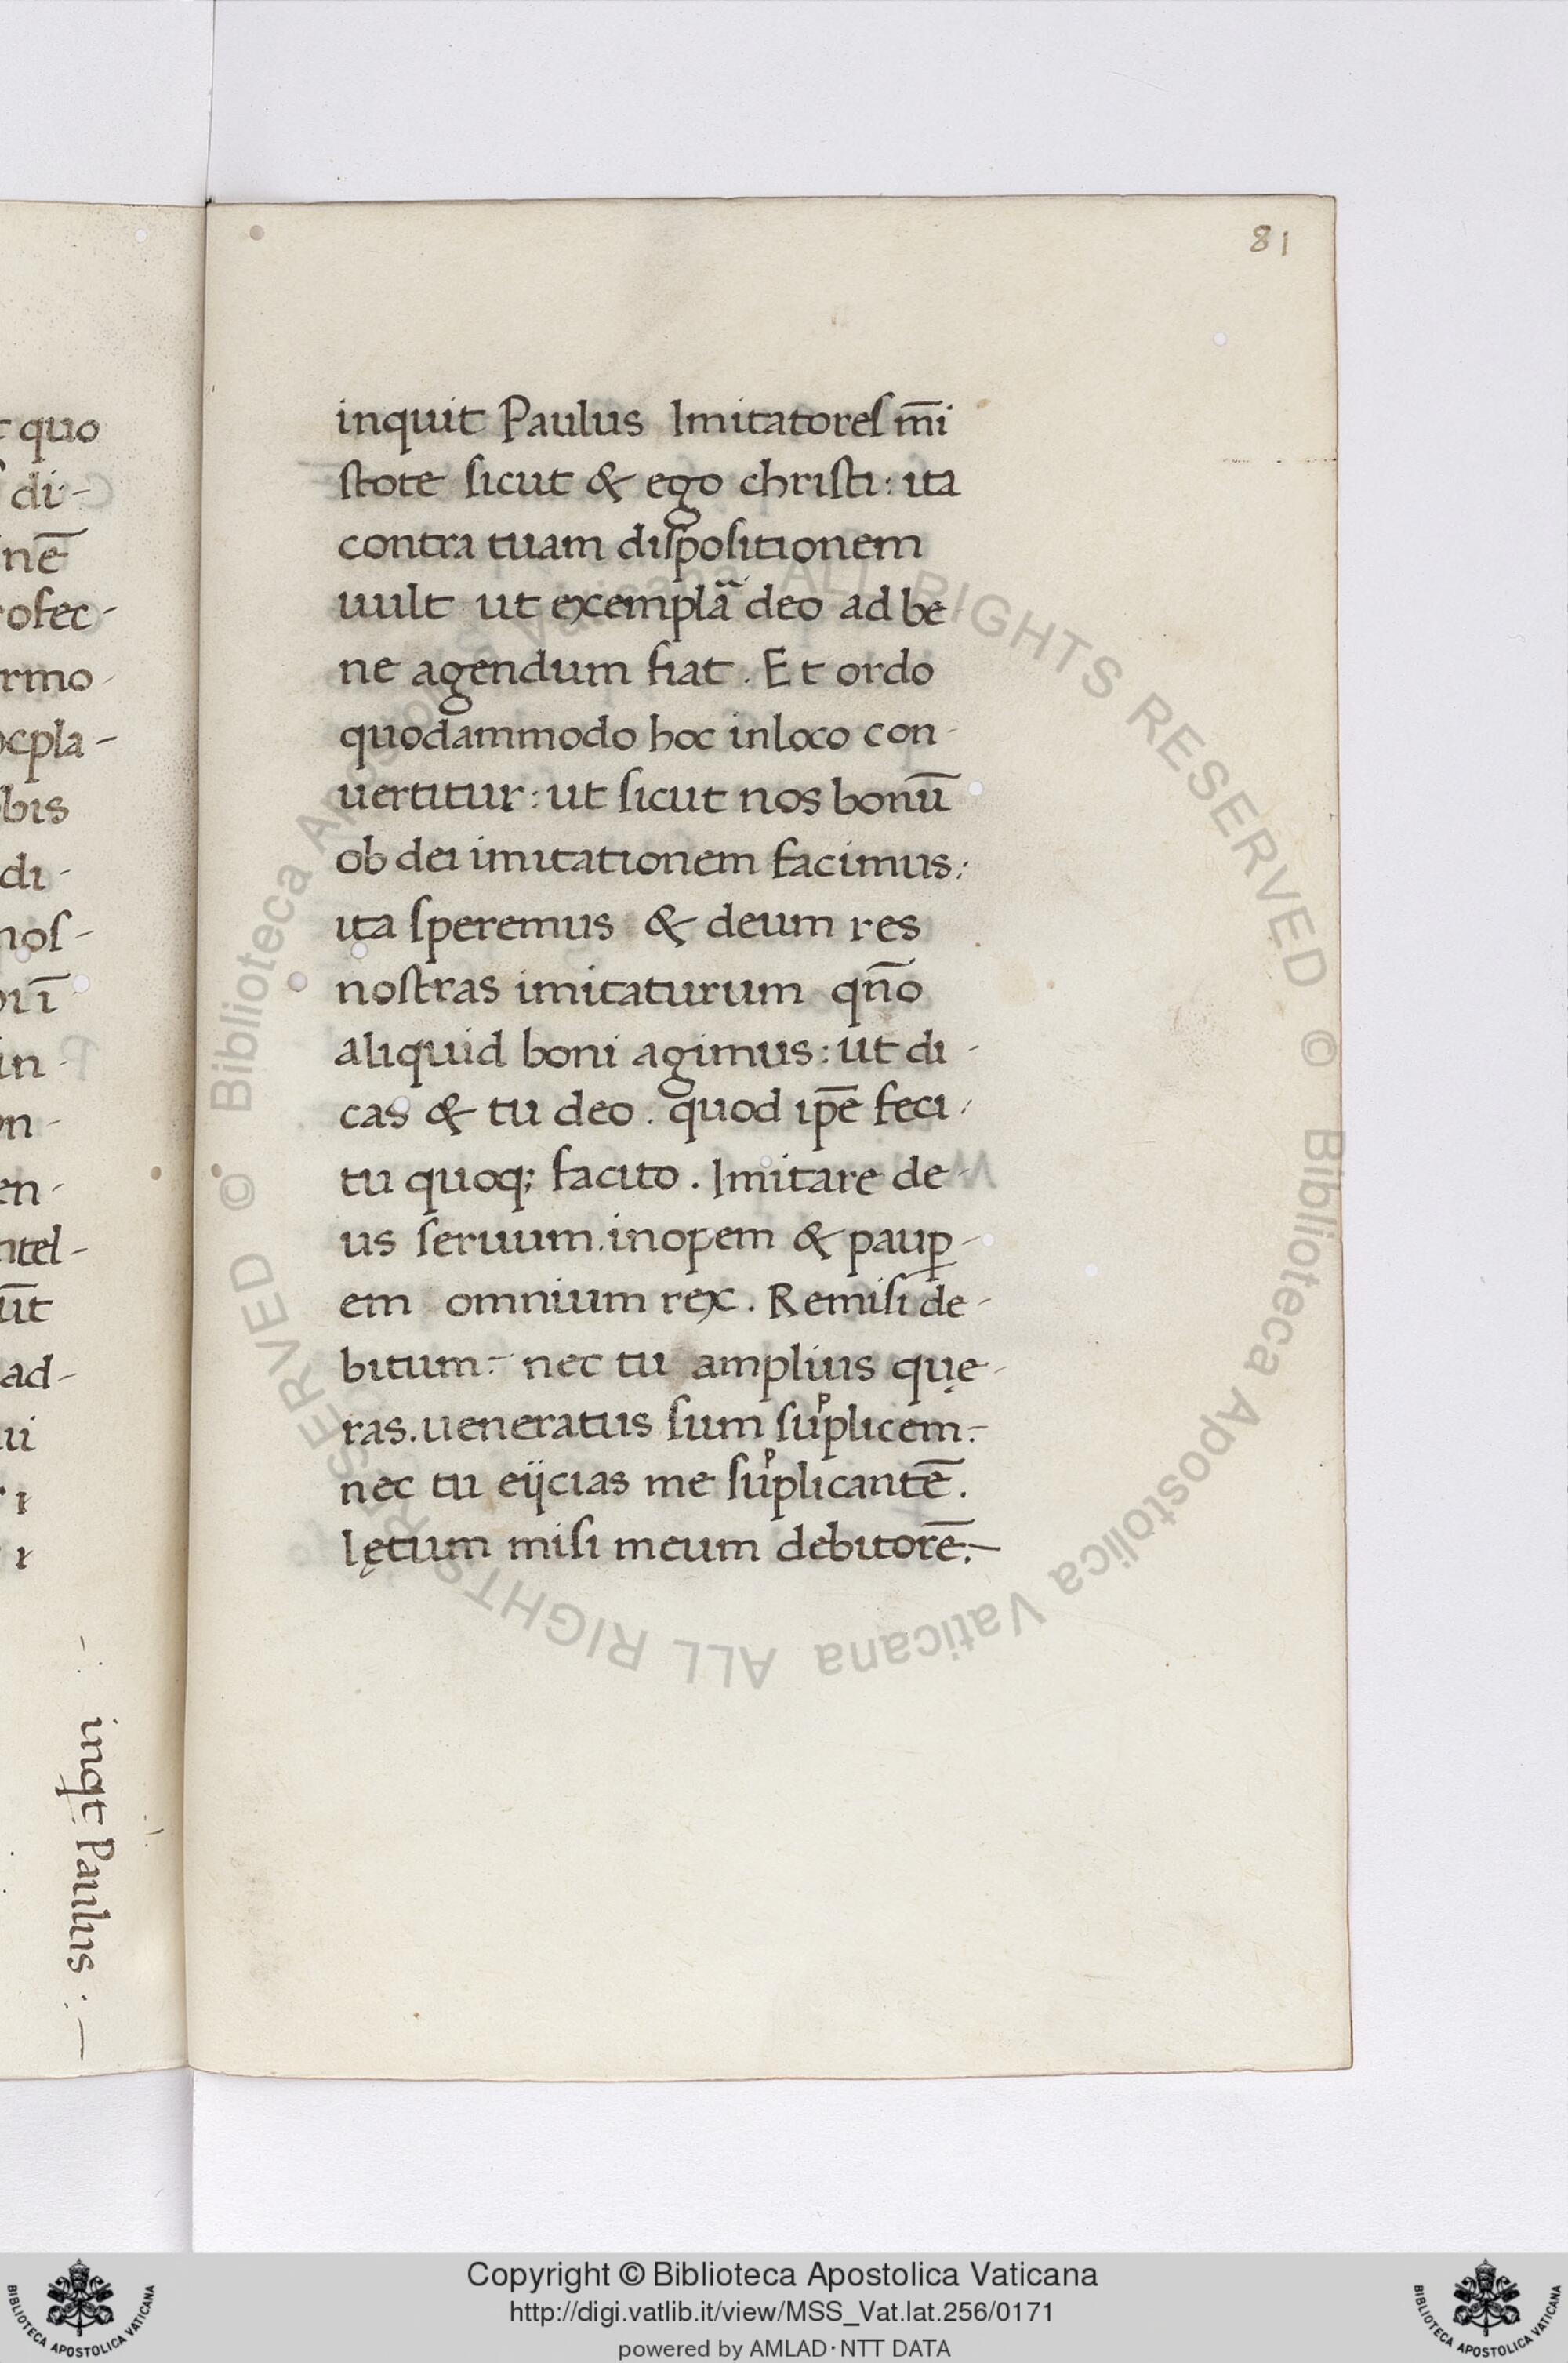 81
inquit Paulus Imitatores m̅i
stote sicut & ego christi: ita
contra tuam dispositionem
uult ut exempla deo ad be
ne agendum fiat. Et ordo
quodammodo hoc inloco con-
uertitur: ut sicut nos bonū
ob dei imitationem facimus:
ita speremus & deum res
nostras imitaturum qn̄o
aliquid boni agimus: ut di-
cas & tu deo. quod ip̄e feci/
tu quoq; facito. Imitare de-
us seruum. inopem & paup̱-
em omnium rex. Remisi de-
bitum:- nec tu amplius quę-
ras. ueneratus sum supplicem:-
nec tu eijcias me supplicantē.
lętum misi meum debitorē:—
quo
di-
nē
ofec-
rmo-
cpla-
bis
di-
nos-
in-
n-
en-
ntel-
ūt
ad-
ui
inqt Paulus:—
© Biblioteca Apostolica Vaticana ALL RIGHTS RESERVED © Biblioteca Apostolica Vaticana ALL RIGHTS RESERVED
BIBLIOTECA APOSTOLICA VATICANA
Copyright © Biblioteca Apostolica Vaticana
http://digi.vatlib.it/view/MSS_Vat.lat.256/0171
powered by AMLAD·NTT DATA
BIBLIOTECA APOSTOLICA VATICANA